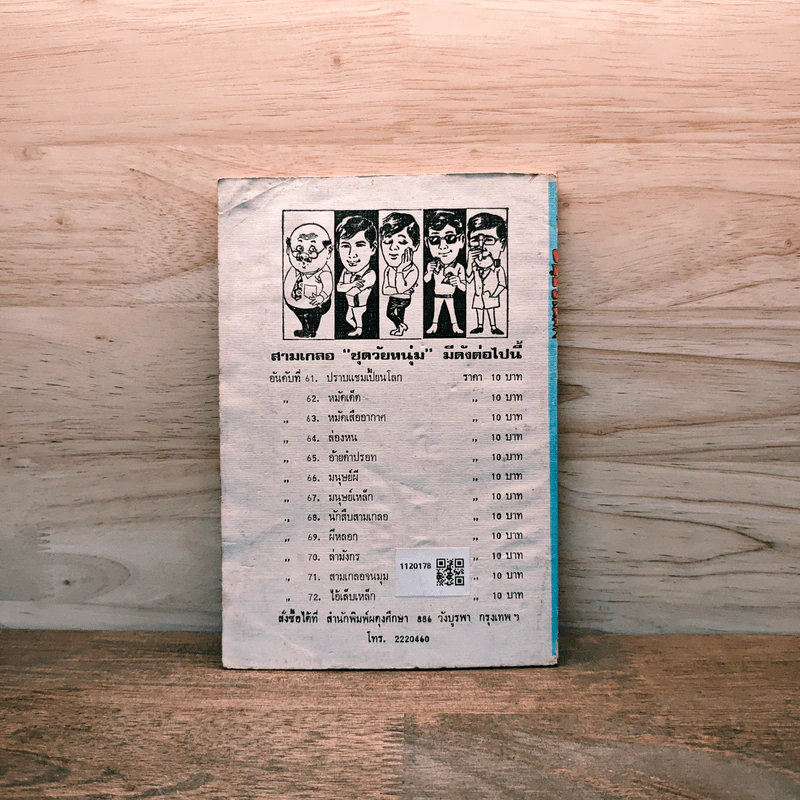 สามเกลอ "ชุดวัยหนุ่ม" มีดังต่อไปนี้
อันดับที่ 61. ปราบแชมเปี้ยนโลก ราคา 10 บาท
„ 62. หมัดเด็ด „ 10 บาท
„ 63. หมัดเสืออากาศ „ 10 บาท
„ 64. ล่องหน „ 10 บาท
„ 65. อ้ายดำปรอท „ 10 บาท
„ 66. มนุษย์ผี „ 10 บาท
„ 67. มนุษย์เหล็ก „ 10 บาท
„ 68. นักสืบสามเกลอ „ 10 บาท
„ 69. ผีหลอก „ 10 บาท
„ 70. ล่ามังกร „ 10 บาท
„ 71. สามเกลอจนมุม „ 10 บาท
„ 72. ไอ้เล็บเหล็ก „ 10 บาท
1120178
สั่งซื้อได้ที่ สำนักพิมพ์ผดุงศึกษา 886 วังบูรพา กรุงเทพฯ
โทร. 2220460